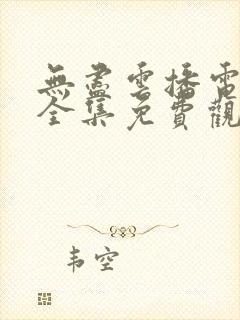 無盡雲播電
全集免費觀
韦空